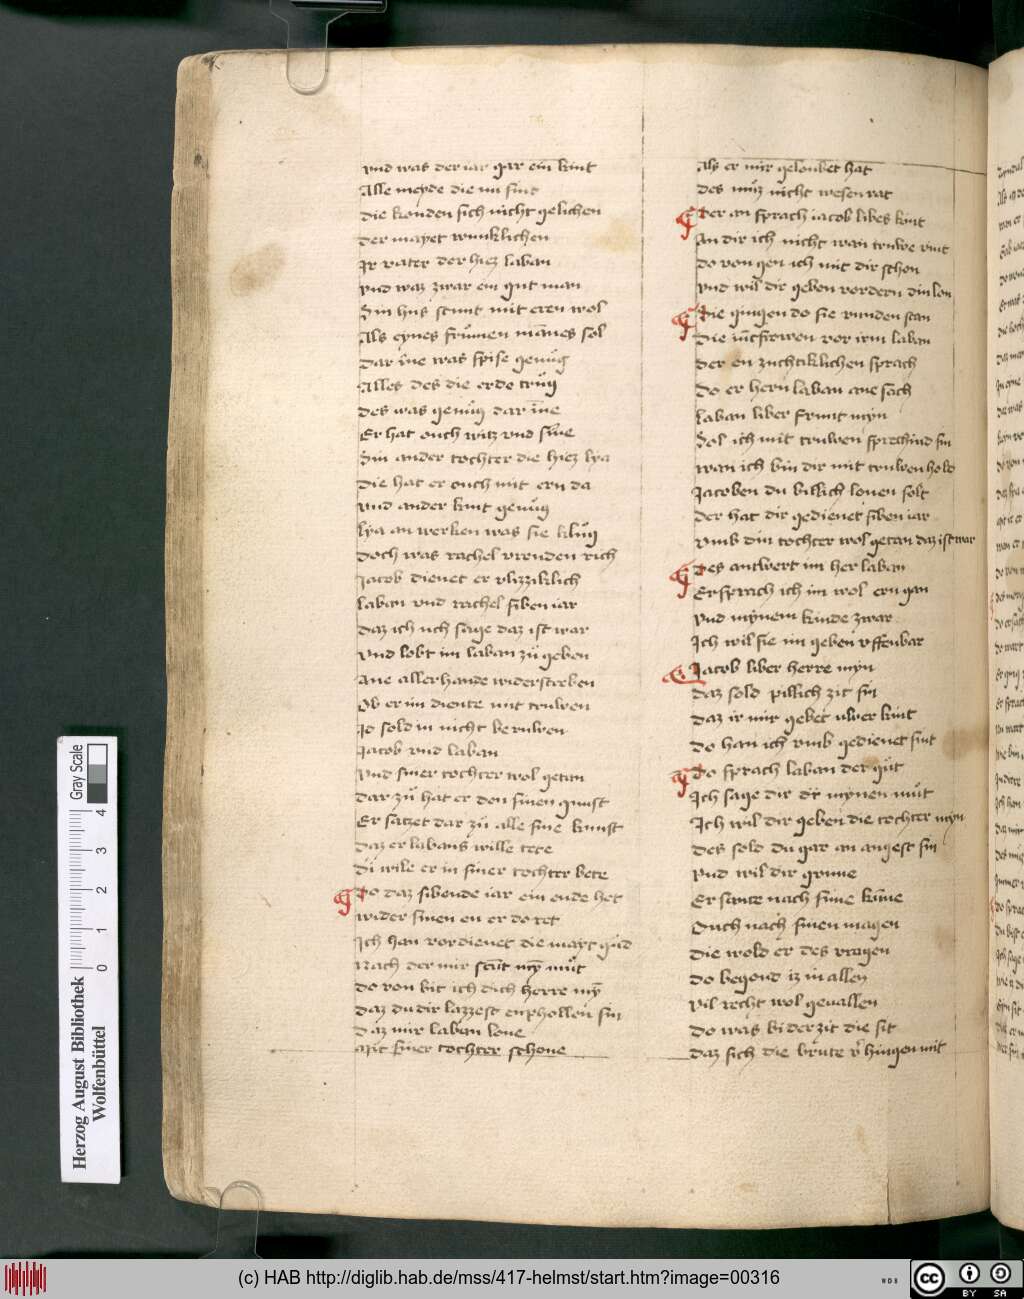 vnd was der iar gar ein kint
Alle meyde die nu sint
die konden sich nicht gelichen
der mayet wunklichen
Ir vater der hiez laban
vnd waz zwar ein gut man
Sin hus stunt mit eren wol
Als eynes frumen mānes sol
dar īne was spise genůg
Alles des die erde trůg
des was genůg dar īne
Er hat ouch witz vnd sīne
Sin ander tochter die hiez lya
die hat er ouch mit ern da
vnd ander kint genůg
lya an werken was sie klůg
doch was rachel vreuden rich
Jacob dienet er vlizziklich
laban vnd rachel siben iar
daz ich uch sage daz ist war
vnd lobt im laban zů geben
ane allerhande widerstreben
Ob er im diente mit truwen
Jo sold in nicht beruwen
Jacob vnd laban
vnd siner tochter wol getan
dar zů hat er den sinen gunst
Er satzet dar zů alle sine kunst
daz er labans wille tete
di wile er in siner tochter bete
Do daz sibende iar ein ende het
wider sinen en er do ret
Ich han vordienet die mayt gůd
Nach der mir stūt my můt
do von bit ich dich herre my
daz du dir lazzest enphollen sin
daz mir laban lone
Mit siner tochter schone
Als er mir geloubet hat
des můz nicht wesen rat
Der an sprach iacob libes kint
An dir ich nicht wan truwe vint
do von gen ich mit dir schon
vnd wil dir geben vordern din lon
Die gingen do sie vunden stan
die iūcfrowen vor irm laban
der en zuchtiklichen sprach
do er hern laban ane sach
laban liber frunt myn
Sol ich mit truwen sprechind sin
wan ich bin dir mit truwen hold
Jacoben du billich lonen solt
der hat dir gedienet siben iar
vmb din tochter wol getan daz ist war
Des antwert im her laban
Er sprach ich im wol ern gan
vnd mynem kinde zwar
Ich wil sie im geben offenbar
Jacob liber herre myn
daz sold pillich zit sin
daz ir mir gebet uwer kint
do han ich vmb gedienet sint
Do sprach laban der gůt
Ich sage dir dr mynen můt
Ich wil dir geben die tochter myn
des sold du gar an angest sin
vnd wil dir gunne
Er sante nach sime kūne
Ouch nach sinen magen
die wold er des vragen
do begond iz in allen
vil recht wol geuallen
do was bi der zit die sit
daz sich die brute v hingen mit
Herzog August Bibliothek
Wolfenbüttel
0 1 2 3 4
Gray Scale
(c) HAB http://diglib.hab.de/mss/417-helmst/start.htm?image=00316
WDB
cc
BY SA